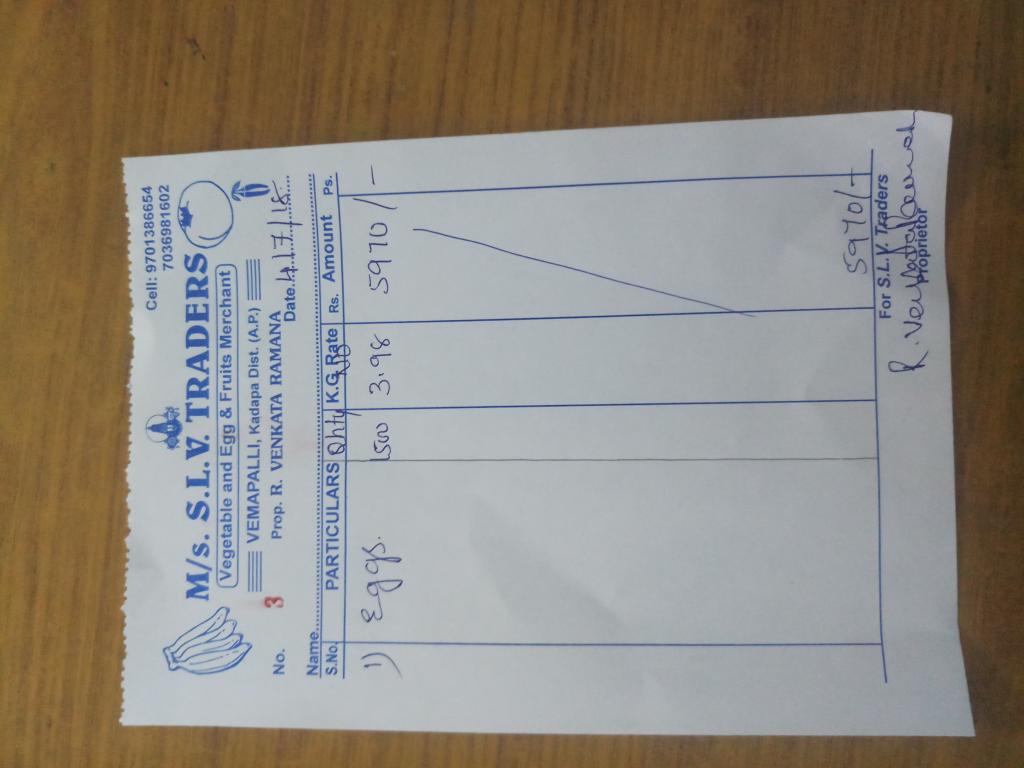 Cell: 9701386654
7036981602
M/s. S.L.V. TRADERS
Vegetable and Egg & Fruits Merchant
VEMAPALLI, Kadapa Dist. (A.P.)
Prop. R. VENKATA RAMANA
No. 3 Date. 4/7/18
Name
S.No. PARTICULARS Qnty K.G. Rate Rs. Amount Ps.
1) Eggs. 1500 3.98 5970/-
5970/-
For S.L.V. Traders
R. Venkata
Proprietor